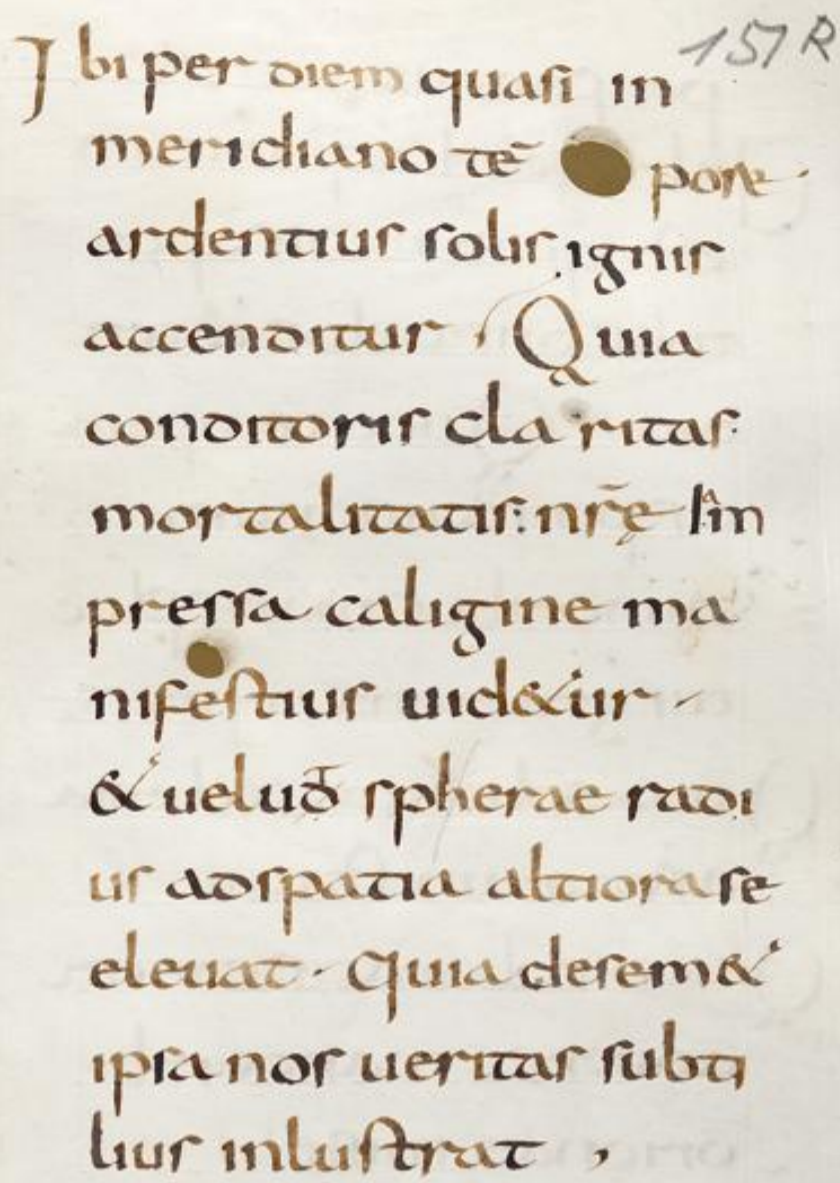 151R
Ibi per diem quasi in
meridiano tē pore
ardentius solis ignis
accenditur. Quia
conditoris claritas
mortalitatis nrę̄ im
pressa caligine ma
nifestius uid&ur
& uelud spherae radi
us adspatia altiora se
eleuat. Quia desem&
ipsa nos ueritas subti
lius inlustrat,